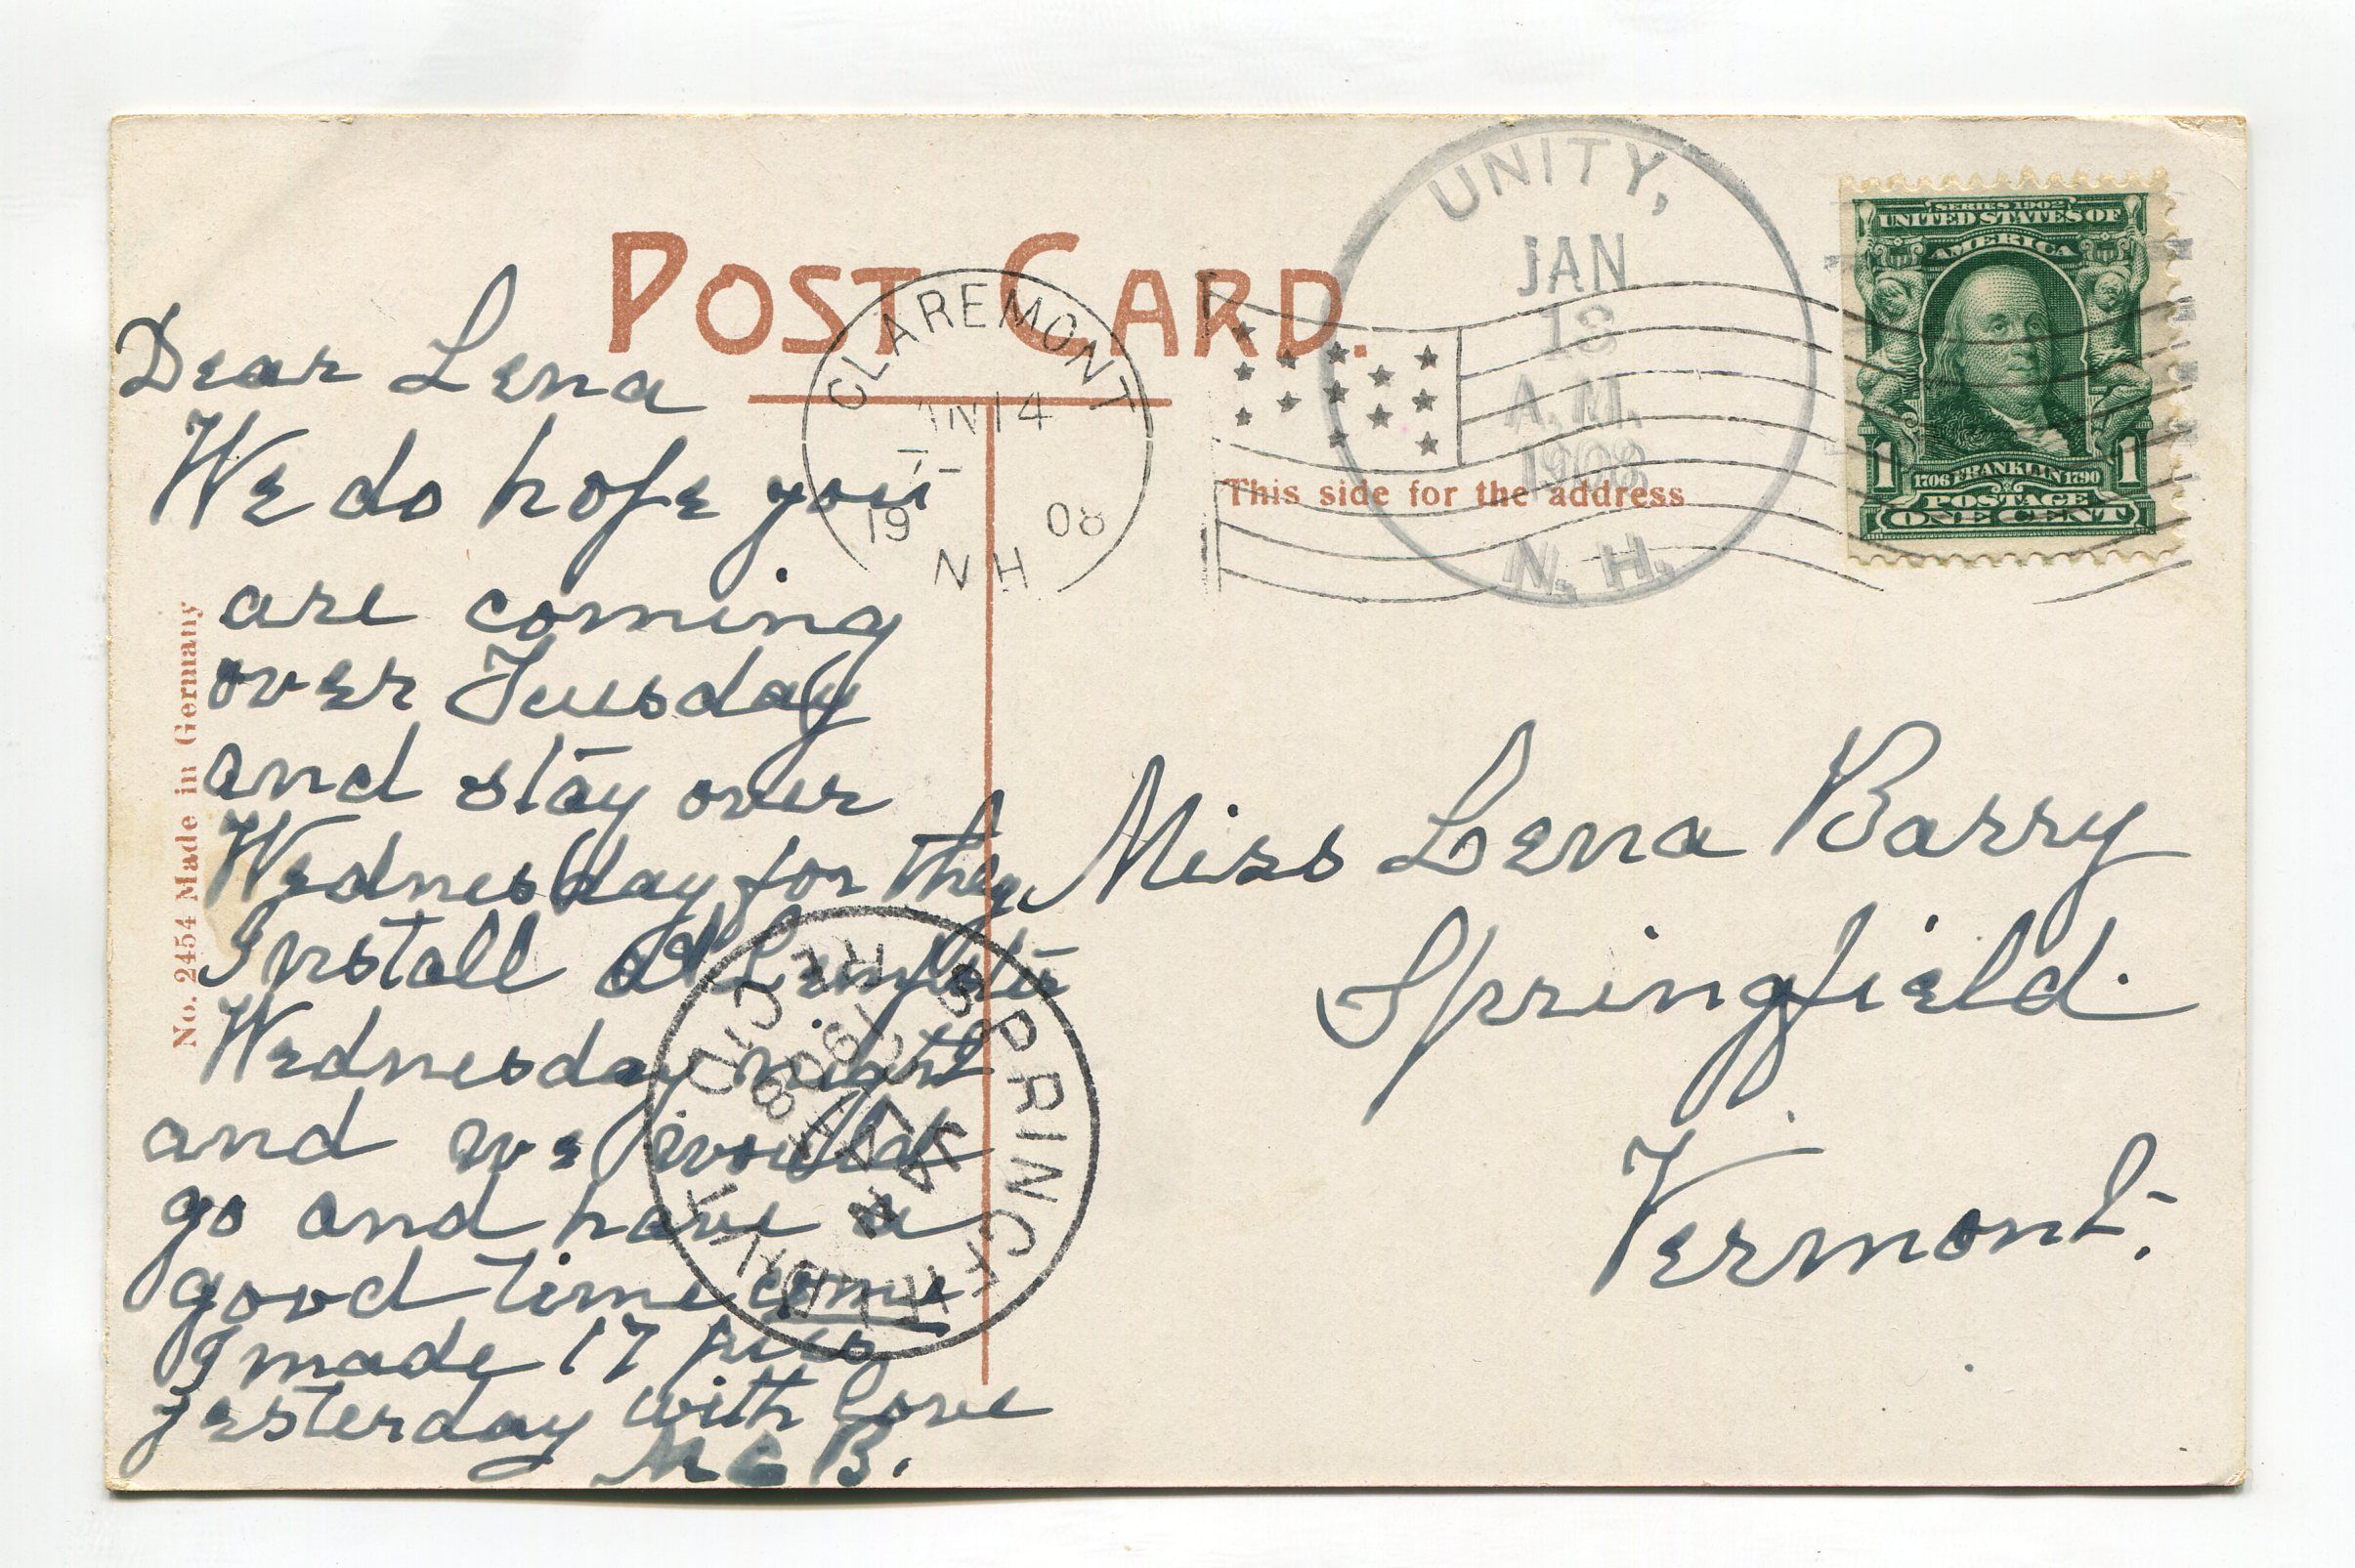 POST CARD.
Dear Lena
We do hope you
are coming
over Tuesday
and stay over
Wednesday for they
Install at Lempster
Wednesday night
and we would
go and have a
good time come
I made 17 pies
yesterday with love
M C B.
No. 2454 Made in Germany
CLAREMONT
JAN 14
19 08
N H
UNITY,
JAN
13
A.M.
1908
N. H.
This side for the address
SERIES 1902
UNITED STATES OF
AMERICA
1 1
1706 FRANKLIN 1790
POSTAGE
ONE CENT
Miss Lena Barry
Springfield.
Vermont.
SPRINGFIELD
JAN
1908
REC'D